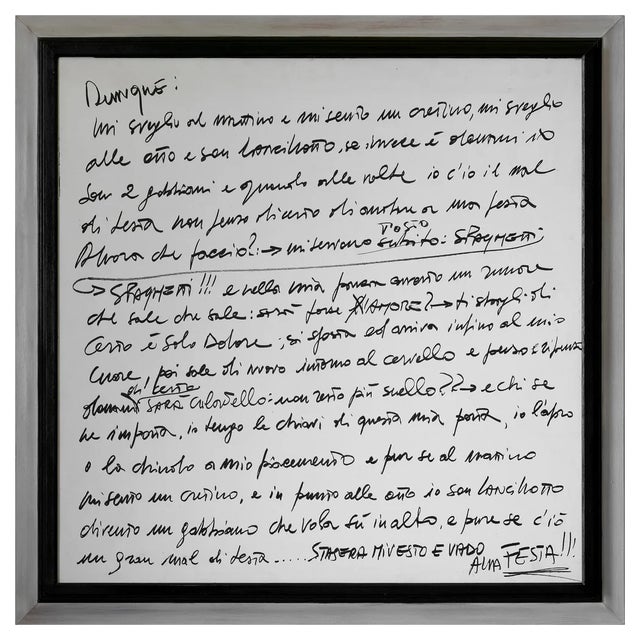 Dunque:
mi sveglio al mattino e mi sento un cretino, mi sveglio
alle otto e son Lancillotto, se invece è domani io
son 2 gabbiani e quando alle volte io c'io il mal
di testa non penso di certo di andare a una festa
Allora che faccio?:→ mi servono TOSTO subito: SPAGHETTI
→ SPAGHETTI!!! e nella mia panza avverto un rumore
che sale che sale: sarà forse l'AMORE?→ ti sbagli di
Certo è Solo Dolore; si sposta ed arriva infino al mio
Cuore, poi sale di nuovo intorno al cervello e penso e ripenso
domani di testa SARÀ: non resto più snello??→ e chi se
ne importa, io tengo le chiavi di questa mia porta, io l'apro
o la chiudo a mio piacemento e pur se al mattino
mi sento un cretino, e in punto alle otto io son Lancillotto
divento un gabbiano che vola sù in alto, e pure se c'iò
un gran mal di testa ..... STASERA MI VESTO E VADO
ALLA FESTA!!!